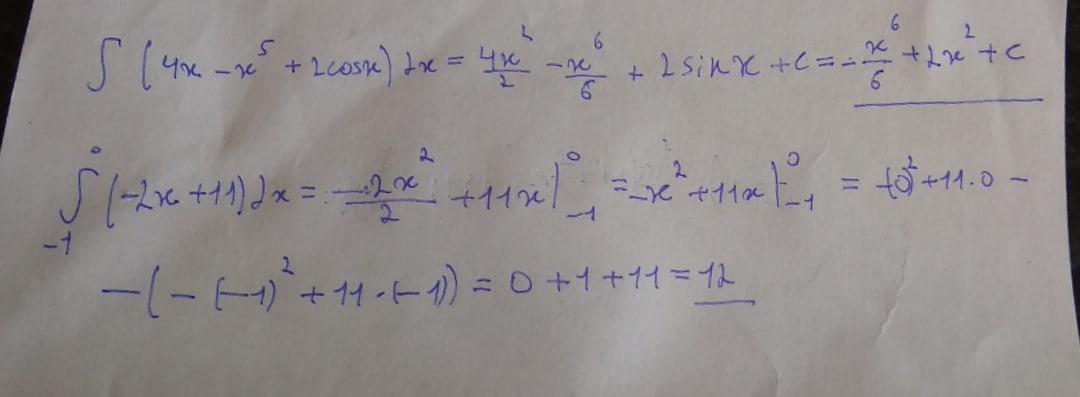 ∫ (4x - x⁵ + 2cosx) dx = 4x²/2 - x⁶/6 + 2 sin x + c = - x⁶/6 + 2x² + c
∫₋₁⁰ (-2x + 11) dx = -2x²/2 + 11x |₋₁⁰ = -x² + 11x |₋₁⁰ = -(0)² + 11·0 -
- (- (-1)² + 11·(-1)) = 0 + 1 + 11 = 12